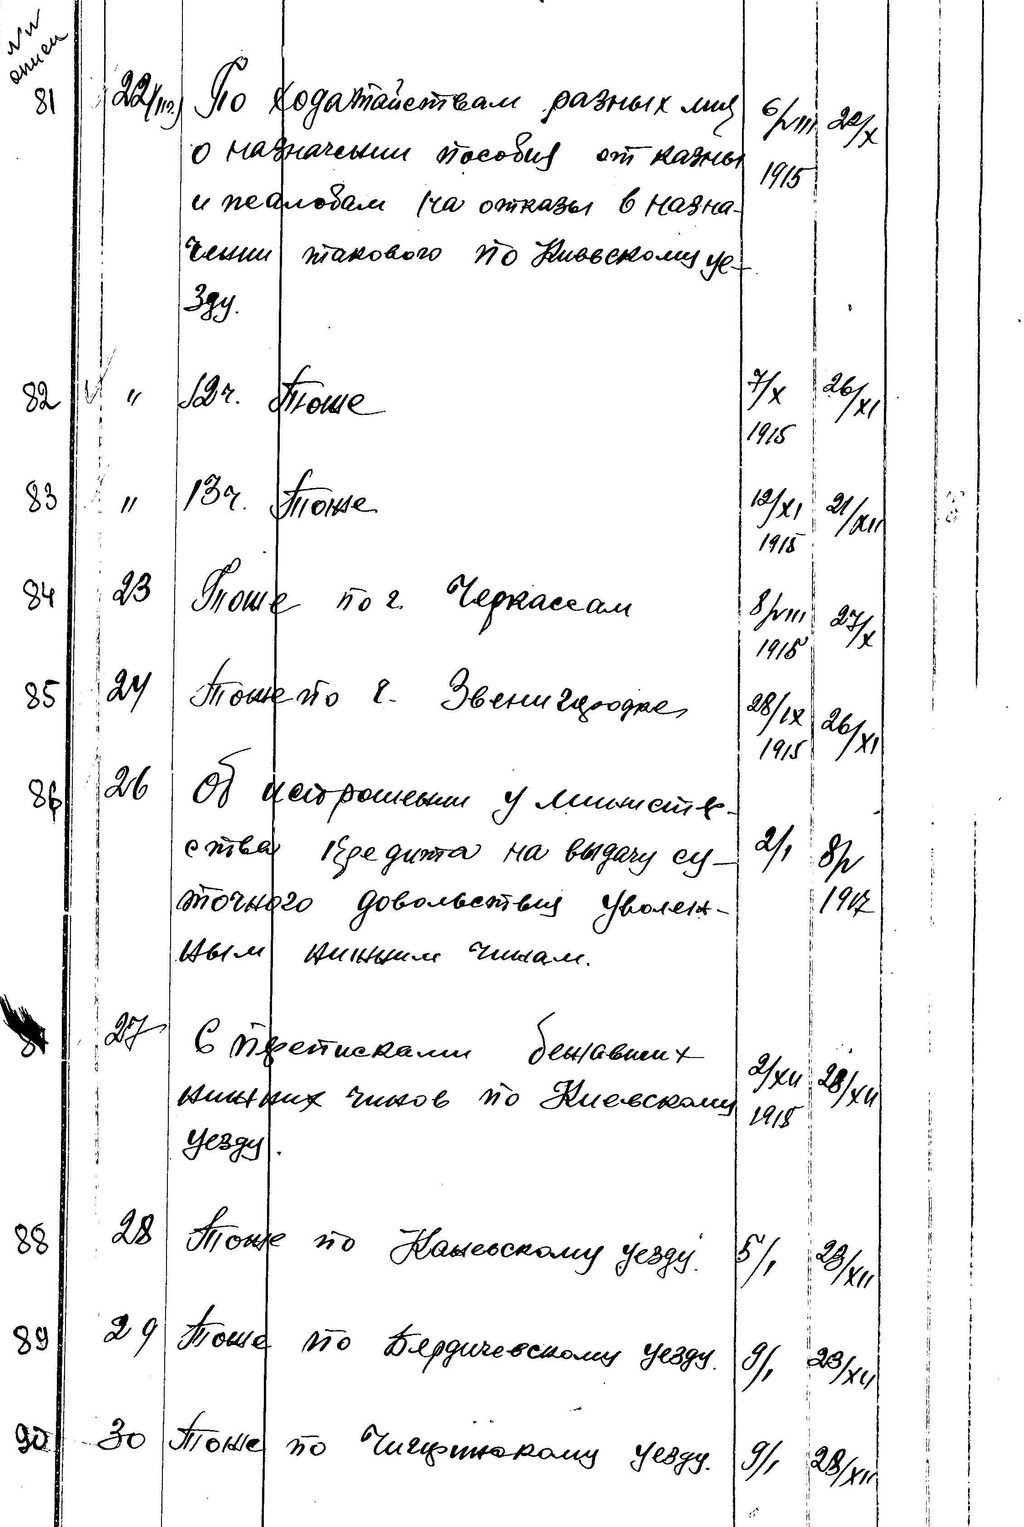 №№ описи
81 22(11ч.) По ходатайствам разных лиц 6/VIII 22/X
о назначении пособия от казны 1915
и жалобам на отказы в назна-
чении такового по Киевскому уе-
зду.
82 " 12ч. Тоже 7/X 26/XI
1915
83 " 13ч. Тоже 12/XI 21/XII
1915
84 23 Тоже по г. Черкассам 8/VIII 27/X
1915
85 24 Тоже по г. Звенигородке 28/IX 26/XI
1915
86 26 Об испрошении у министе-
ства кредита на выдачу су- 2/I 8/V
точного довольствия уволен- 1917
ным нижним чинам.
87 27 С переписками бежавших
нижних чинов по Киевскому 2/XII 28/XII
уезду. 1915
88 28 Тоже по Каневскому уезду. 5/I 23/XII
89 29 Тоже по Бердичевскому уезду. 9/I 23/XII
90 30 Тоже по Чигиринскому уезду. 9/I 28/XII